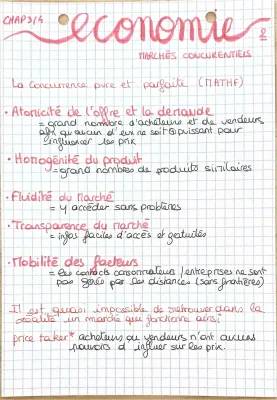 CHAP 3/4
economie
MARCHÉS CONCURENTIELS
La concurrence pure et parfaite (MATHF)
• Atomicité de l'offre et la demande
= grand nombre d'acheteurs et de vendeurs
afin qu'aucun d'eux ne soit puissant pour
influencer les prix
• Homogénité du produit
= grand nombres de produits similaires
• Fluidité du marché
= y accéder sans problèmes
• Transparence du marché
= infos faciles d'accès et gratuites
• Mobilité des facteurs
= les contacts consommateurs / entreprises ne sont
pas gênés par les distances (sans frontières)
Il est quasi impossible de retrouver dans la
réalité un marché qui fonctionne ainsi
price taker* acheteurs ou vendeurs n'ont aucuns
pouvoirs d'influer sur les prix.